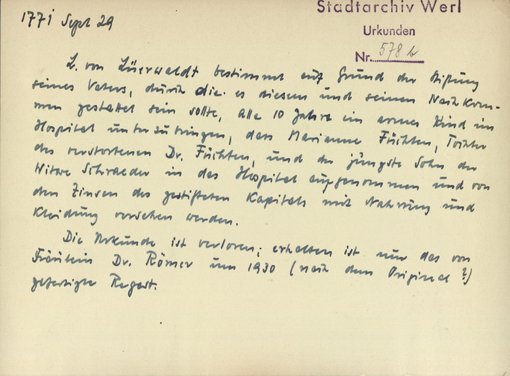 1771 Sept 29
Stadtarchiv Werl
Urkunden
Nr. 578 b
L. von Lüerwaldt bestimmt auf Grund der Stiftung
seines Vaters, durch die es diesem und seinen Nachkom-
men gestattet sein sollte, alle 10 Jahre ein armes Kind im
Hospital unterzubringen, dass Marianne Füchten, Tochter
des verstorbenen Dr. Füchten, und der jüngste Sohn der
Witwe Schraeder in das Hospital aufgenommen und von
den Zinsen des gestifteten Kapitals mit Nahrung und
Kleidung versehen werden.
Die Urkunde ist verloren; erhalten ist nur das von
Fräulein Dr. Römer um 1930 (nach dem Original?)
gefertigte Regest.